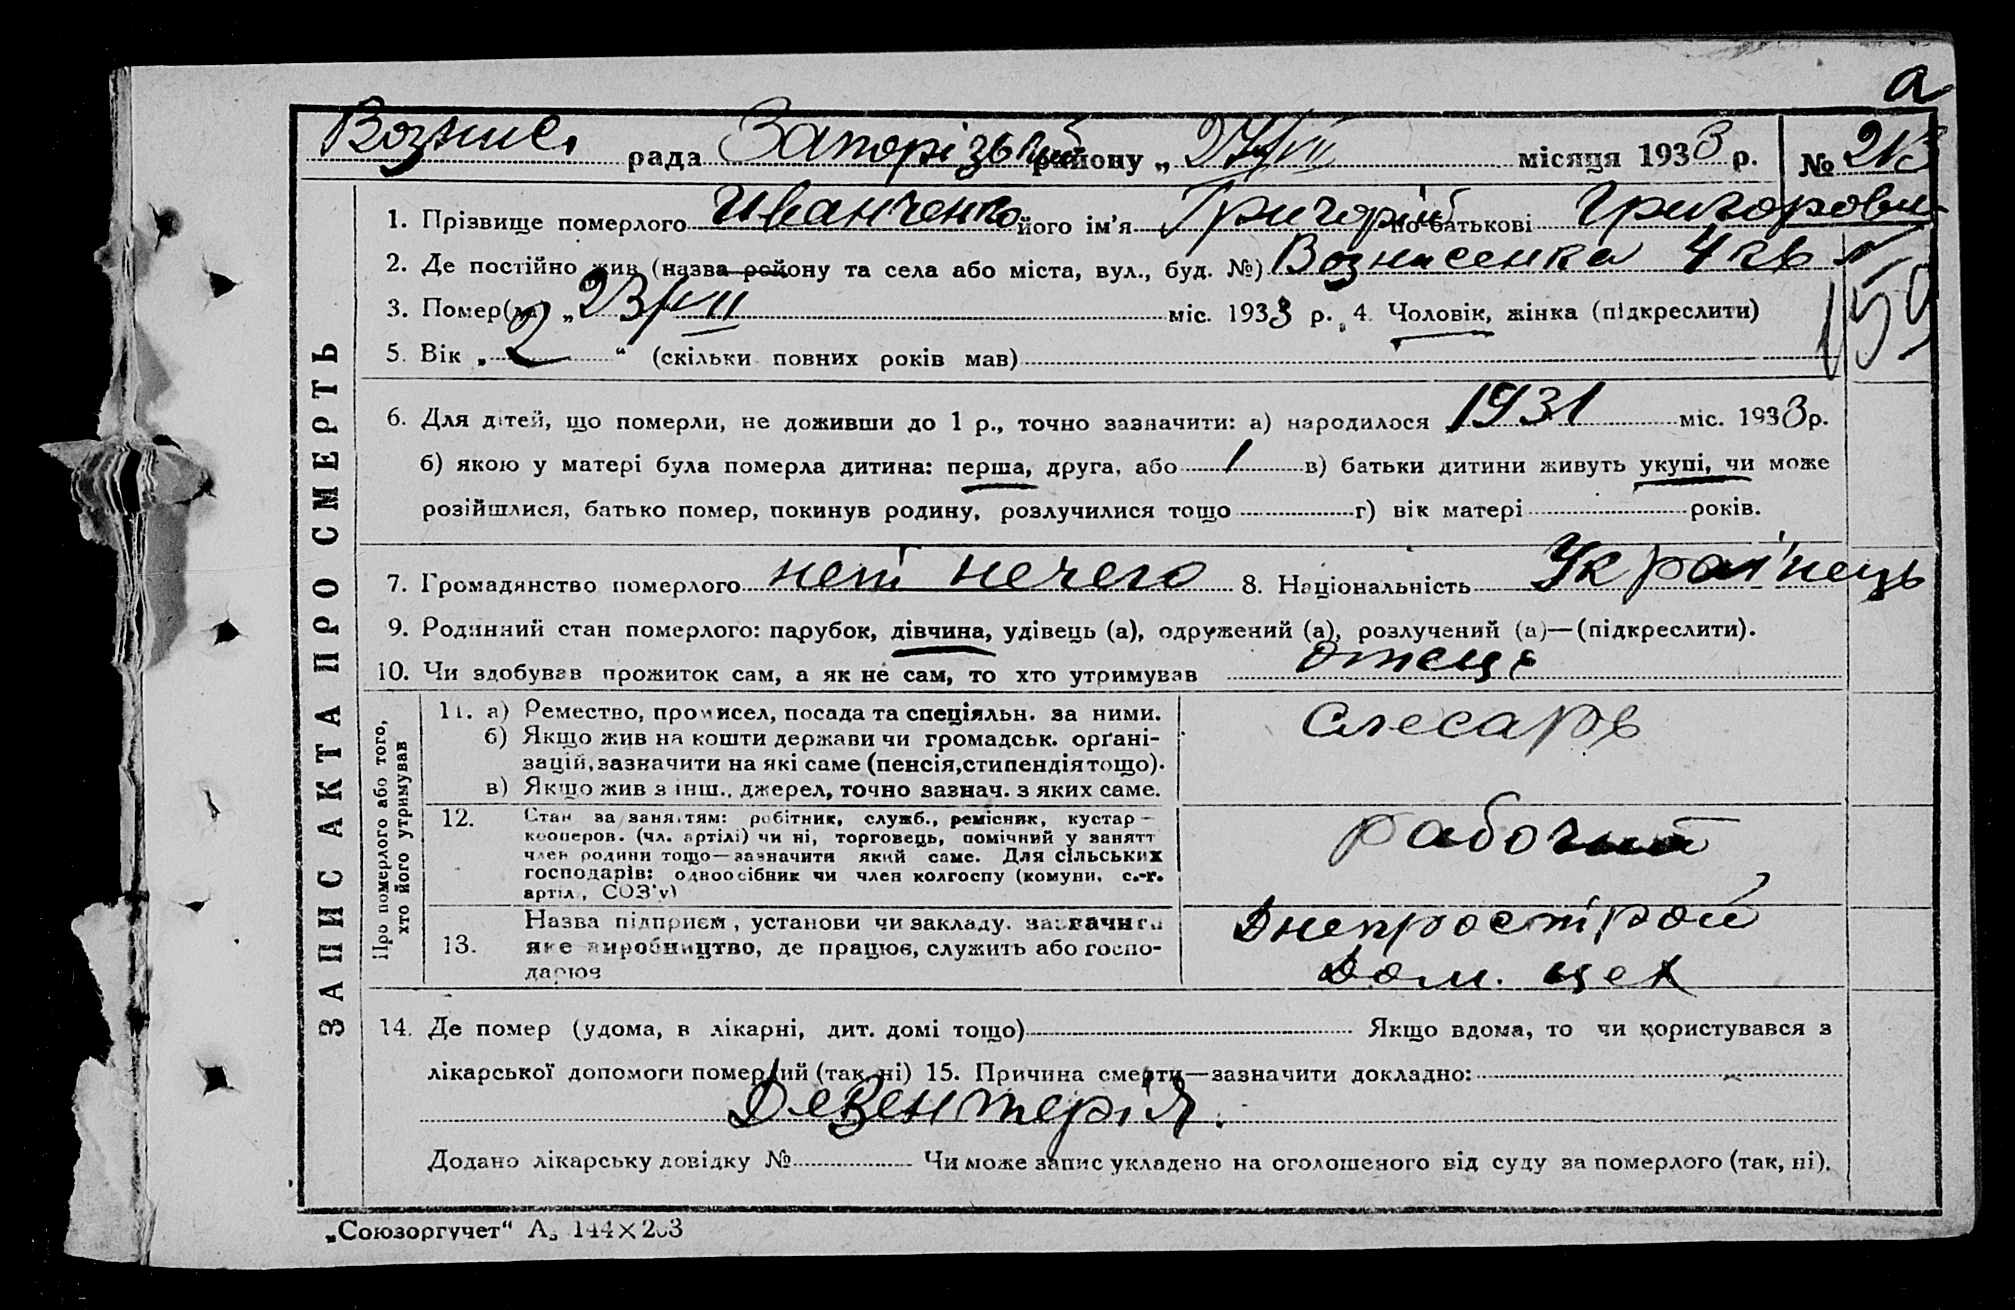 а
Вознис. рада Запорізький району „ 27/VII місяця 1933 р. № 213
1. Прізвище померлого Иванченко його ім'я Григорій по-батькові Григорови
2. Де постійно жив (назва району та села або міста, вул., буд. №) Вознисенка 4 кв
3. Помер(ла) „ 23/VII міс. 1933 р. 4. Чоловік, жінка (підкреслити)
159
5. Вік „ 2 “ (скільки повних років мав)
6. Для дітей, що померли, не доживши до 1 р., точно зазначити: а) народилося 1931 міс. 1933 р.
б) якою у матері була померла дитина: перша, друга, або 1 в) батьки дитини живуть укупі, чи може
розійшлися, батько помер, покинув родину, розлучилися тощо г) вік матері років.
7. Громадянство померлого нет нечего 8. Національність Українець
9. Родинний стан померлого: парубок, дівчина, удівець (а), одружений (а), розлучений (а)—(підкреслити).
10. Чи здобував прожиток сам, а як не сам, то хто утримував отець
ЗАПИС АКТА ПРО СМЕРТЬ
Про померлого або того, хто його утримував
11. а) Ремество, промисел, посада та спеціяльн. за ними. слесарь
б) Якщо жив на кошти держави чи громадськ. орґані-
зацій, зазначити на які саме (пенсія, стипендія тощо).
в) Якщо жив з інш., джерел, точно зазнач. з яких саме.
12. Стан за заняттям: робітник, служб., ремісник, кустар —
кооперов. (чл. артілі) чи ні, торговець, помічний у занятт
член родини тощо—зазначити який саме. Для сільських рабочий
господарів: одноосібник чи член колгоспу (комуни, с.-г.
артіл., СОЗ'у)
13. Назва підприєм, установи чи закладу. зазначити Днепрострой
яке виробництво, де працює, служить або госпо-
дарює Дом. цех
14. Де помер (удома, в лікарні, дит. домі тощо) Якщо вдома, то чи користувався з
лікарської допомоги померлий (так, ні) 15. Причина смерти—зазначити докладно:
Дезентерія.
Додано лікарську довідку № Чи може запис укладено на оголошеного від суду за померлого (так, ні).
„Союзоргучет“ А₅ 144×203